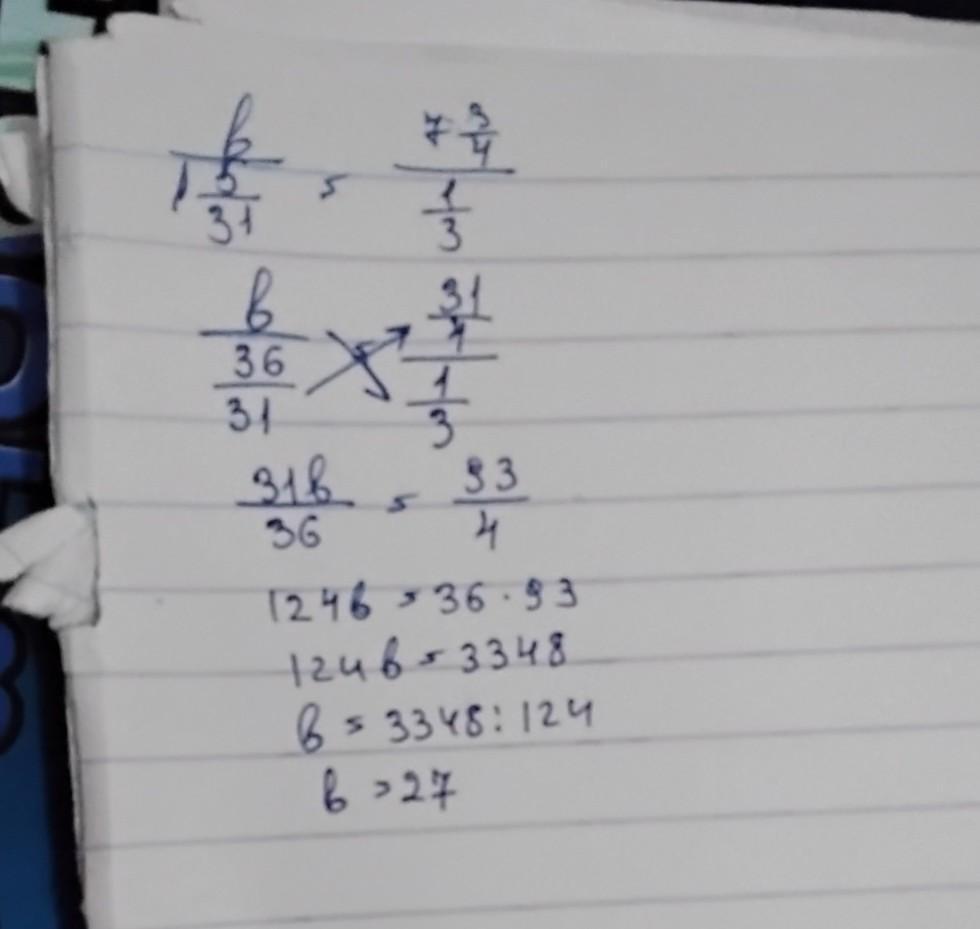 b / 1 5/31 = 7 3/4 / 1/3
b / 36/31 = 31/4 / 1/3
31b/36 = 93/4
124b = 36 · 93
124b = 3348
b = 3348 : 124
b = 27